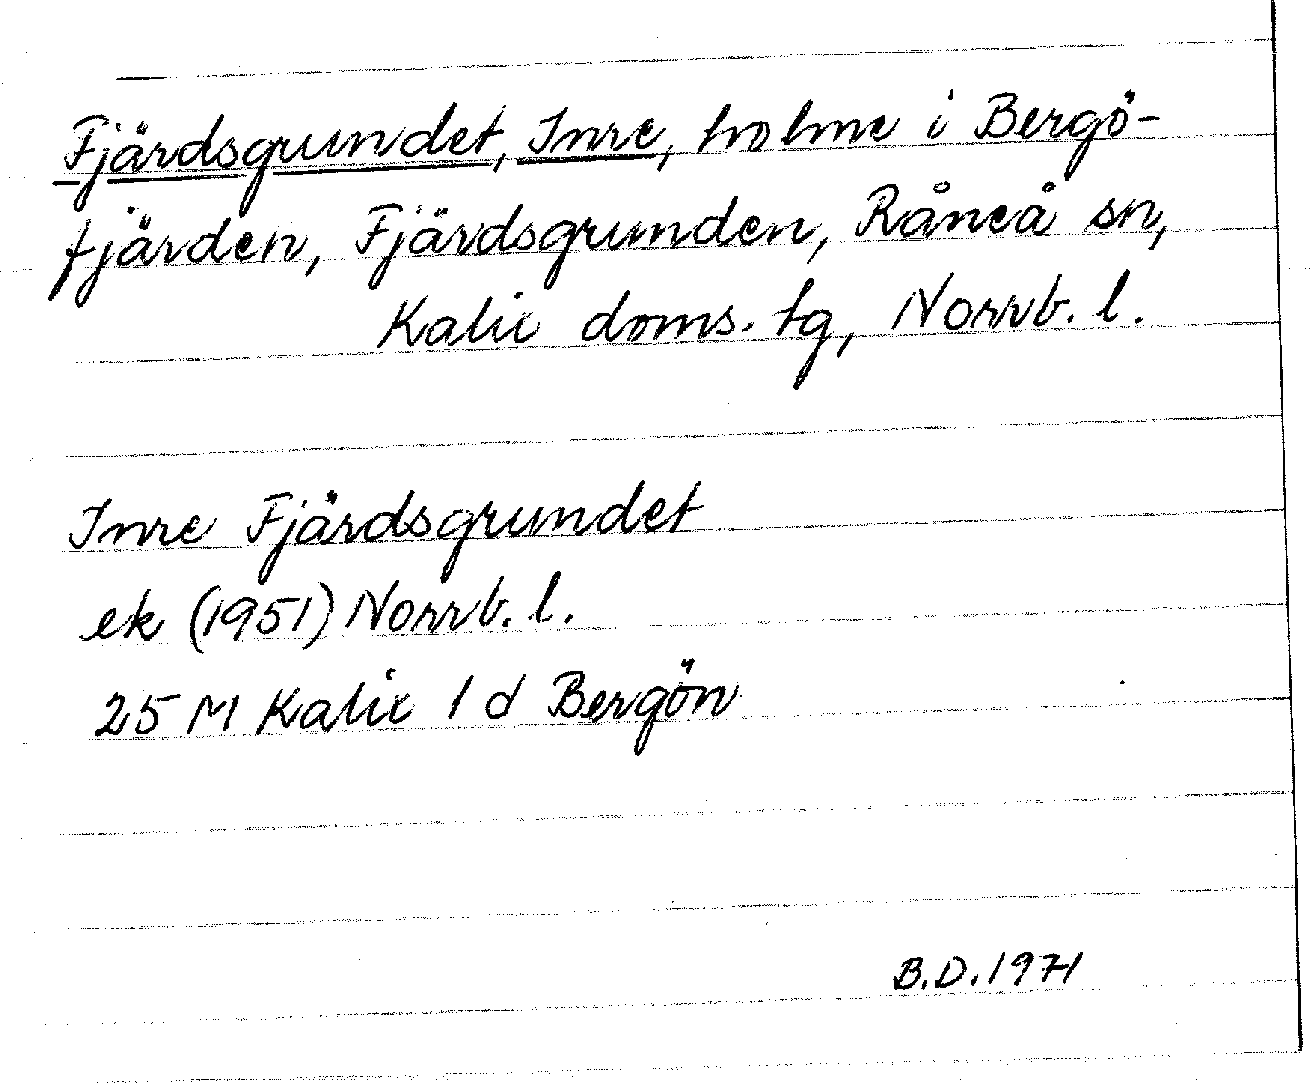 Fjärdsgrundet, Inre, holme i Bergö-
fjärden, Fjärdsgrunden, Råneå sn,
Kalix doms. tg, Norrb. l.
Inre Fjärdsgrundet
ek (1951) Norrb. l.
25 M Kalix 1 d Bergön
B.D. 1971